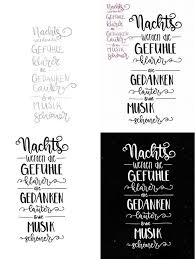 Nachts
werden die
GEFÜHLE
klarer
die
GEDANKEN
lauter
&die
MUSIK
schöner
Nachts
werden die
GEFÜHLE
klarer
die
GEDANKEN
lauter
MUSIK
schöner
Nachts
werden die
GEFÜHLE
klarer
die
GEDANKEN
lauter
MUSIK
schöner
Nachts
werden die
GEFÜHLE
klarer
die
GEDANKEN
lauter
MUSIK
schöner
Nachts
werden die
GEFÜHLE
klarer
die
GEDANKEN
lauter
MUSIK
schöner